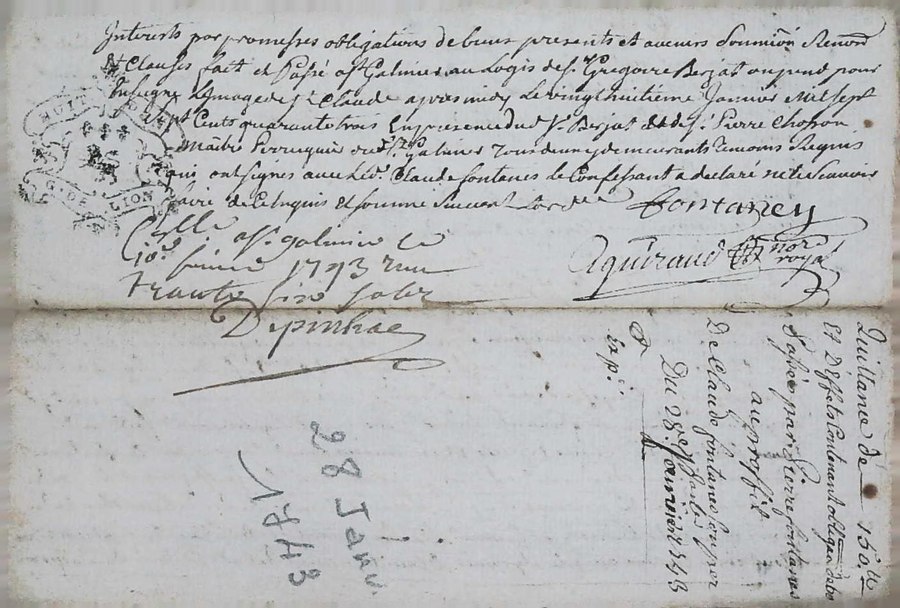 Interests par promesses obligations de biens presents et avenirs Soumission Renon
et Clauses fait et Passé a St Galmier au Logis de Sr Gregoire Berjat ou pend pour
Enseigne Lymage de St Claude apres midy Le vingt huitieme Janvier Mil sept
Cents quarante trois En presence dud Sr Berjat et de Sr Pierre
Maitre Perruquier dud St Galmier Tous deux y demeurants Temoins Requis
qui ont signés avec Led. Claude fontanes le Confessant a declaré ne Le Scavoir
faire de Ce Enquis et somme Suivant Lordce fontaney
GUIraud nore royal
a st galmier le
10e 1743 reçu
trente six sols
Depinhac
DE LION
Quittance de 156 tt
Et D'effets Contenant obligaon de
Passée par Pierre fontanes
au profit
De Claude fontanes
Du 28e Janvier 1743
Exp.
28 Janv.
1743